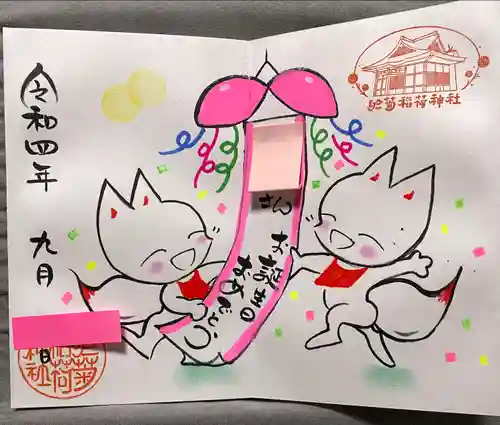 於菊稲荷神社
さん お誕生日
おめでとう
令和四年 九月
日